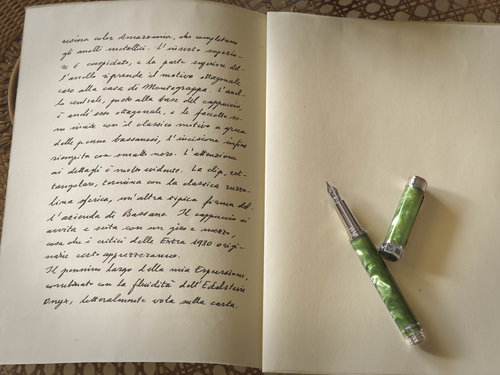 resina color Amazzonia, che completano
gli anelli metallici. L'inserto superio-
re è congidato, e la parte superiore del-
l'anello riprende il motivo ottagonale
caro alla casa di Montegrappa. L'anel-
lo centrale, posto alla base del cappuccio,
è anch'esso ottagonale, e le faccette so-
no incise con il classico motivo a greca
delle penne bassanesi, l'incisione infine
riempita con smalto nero. L'attenzione
ai dettagli è molto evidente. La clip, ret-
tangolare, termina con la classica rotel-
lina sferica, un'altra tipica firma del-
l'azienda di Bassano. Il cappuccio si
avvita e svita con un giro e mezzo,
cosa che i critici delle Extra 1930 origi-
narie certo apprezzeranno.
Il pennino largo della mia Espressione,
combinato con la fluidità dell'Edelstein
Onyx, letteralmente vola sulla carta.